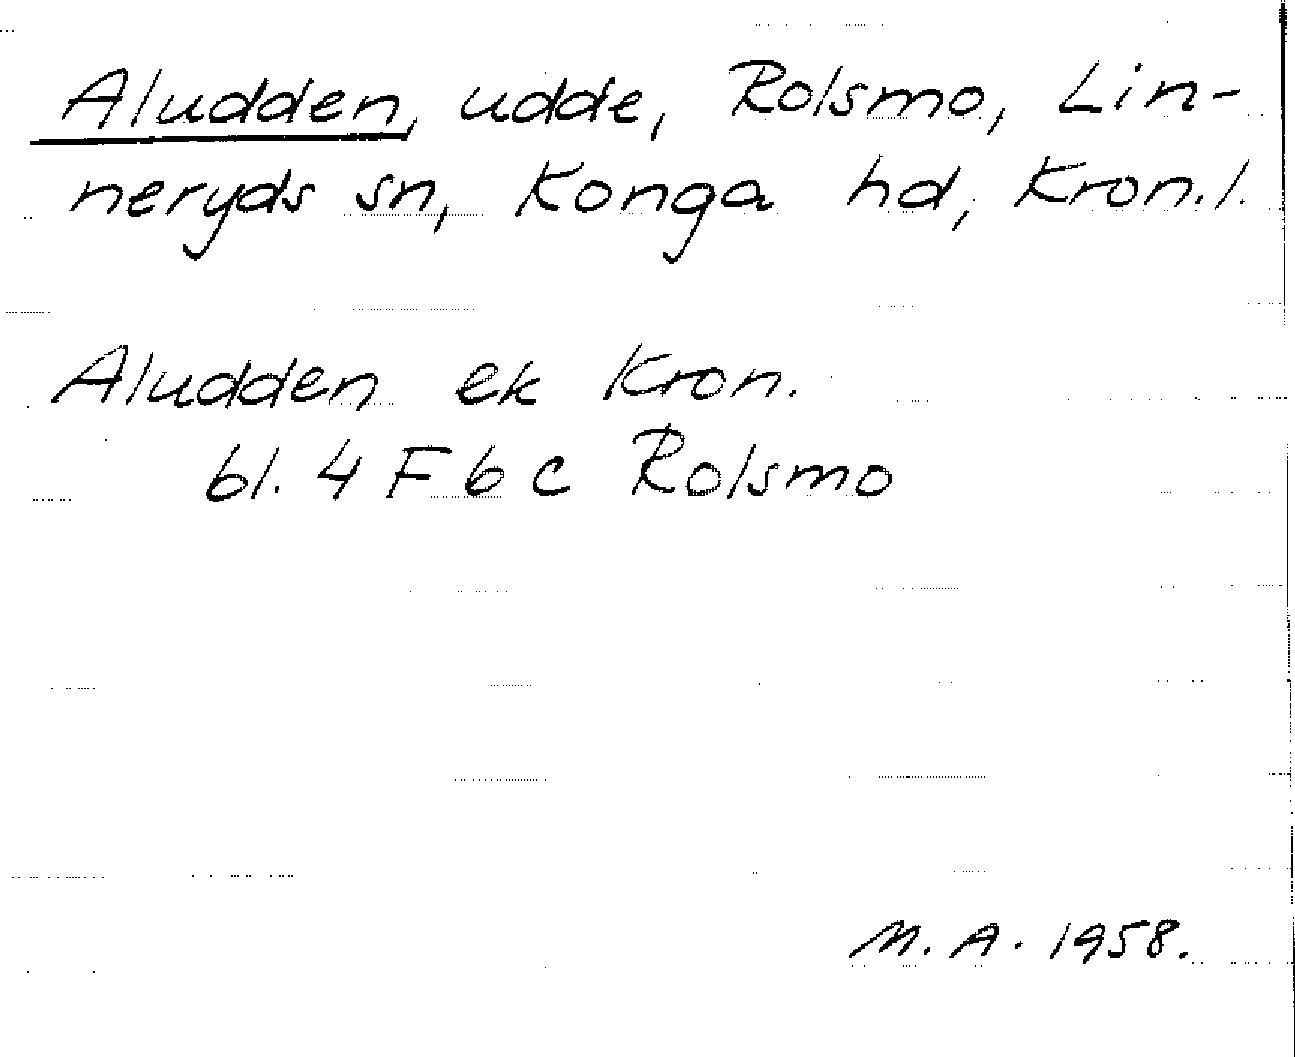 Aludden, udde, Rolsmo, Lin-
neryds sn, Konga hd, Kron.l.
Aludden ek Kron.
bl. 4 F 6 c Rolsmo
M.A. 1958.